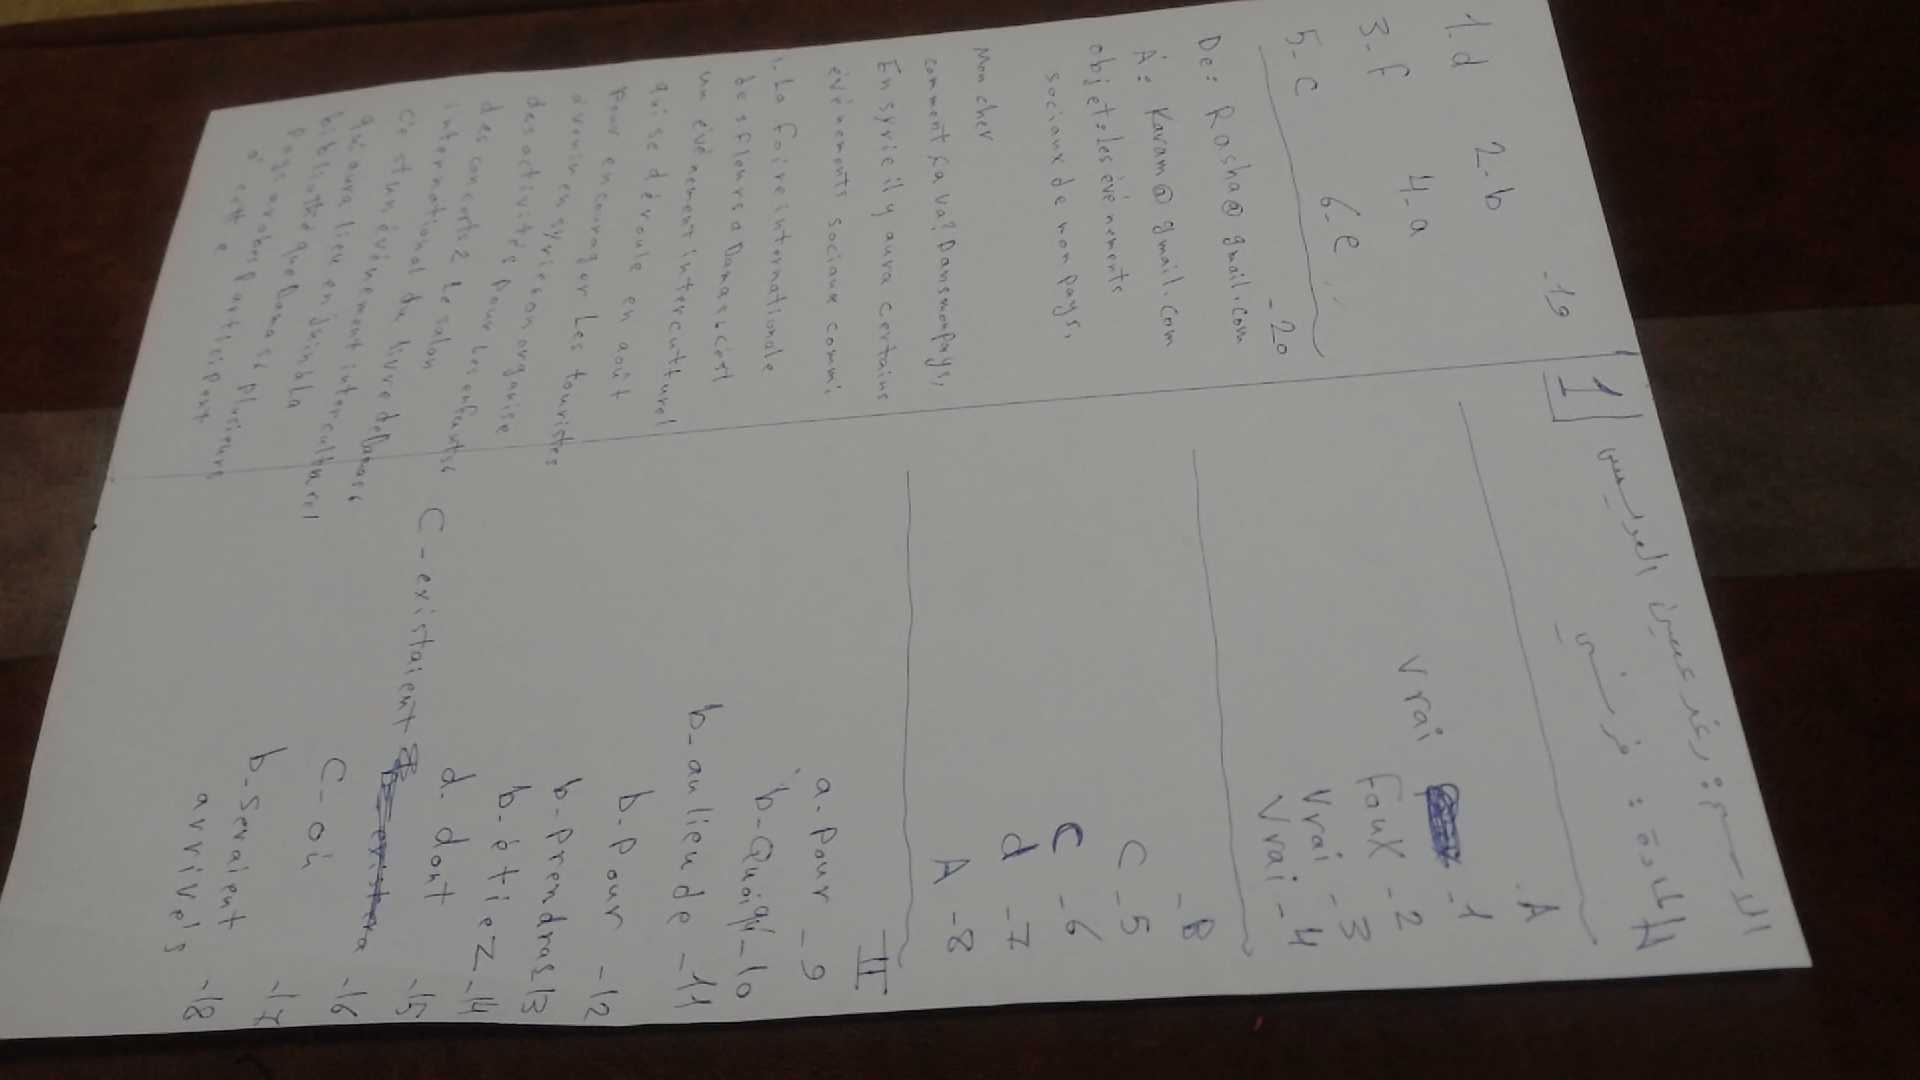 الاسم: رغد عيسى العوليس
المادة: فرنسي
1
A-
1- vrai
2- Faux
3- vrai
4- vrai
B-
5- C
6- C
7- d
8- A
II
9- a. pour
10- b- Quoiqu'
11- b- au lieu de
12- b- pour
13- b- prendras
14- b- étiez
15- d. dont
16- C- existaient
17- C- où
18- b- Seraient
arrivels
19-
1. d 2- b
3- F 4- a
5- C 6- e
20-
De: Rasha@gmail.com
À: Karam@gmail.com
objet: Les événements
sociaux de mon pays,
Mon cher
comment ça va? Dans mon pays,
En syrie il y aura certains
événements sociaux comm:
1. La foire internationale
des fleurs a Damas: c'est
un événement intercuturel
qui se déroule en août
Pour encourager Les touristes
à venir en syrie: on organise
des activités pour Les enfants
des concerts 2 Le salon
international du livre de Damas:
C'est un événement intercultural
qui aura lieu en Juin à La
bibliothèque Damas: plusieurs
Pays arabes participent
à cette